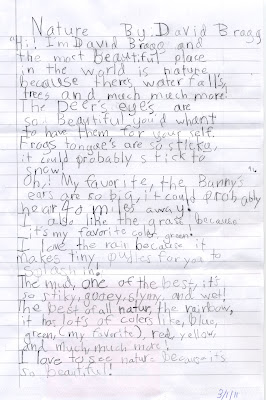 Nature By: David Bragg
"Hi! Im David Bragg and
the most beautiful place
in the world is nature
because there's water fall's,
trees and, much much more!
The Deer's eye's are
so Beautiful you'd whant
to have them for your self.
Frogs tongue's are so sticky,
it could probably stick to
snow!
Oh,! My favorite, the Bunny's
ears are so big, it could probably
hear 10 miles away!
I also like the grass because
it's my favorite color, green!
I love the rain because it
makes tiny pudles for you to
splash in!
The mud, one of the best, it's
so stiky, gooey, slymy, and wet!
The best of all natur, the rainbow,
it has lots of colors like, blue,
green, (my favorite), red, yellow,
and much much more!
I love to see nature because its
so beautiful!
3/1/11